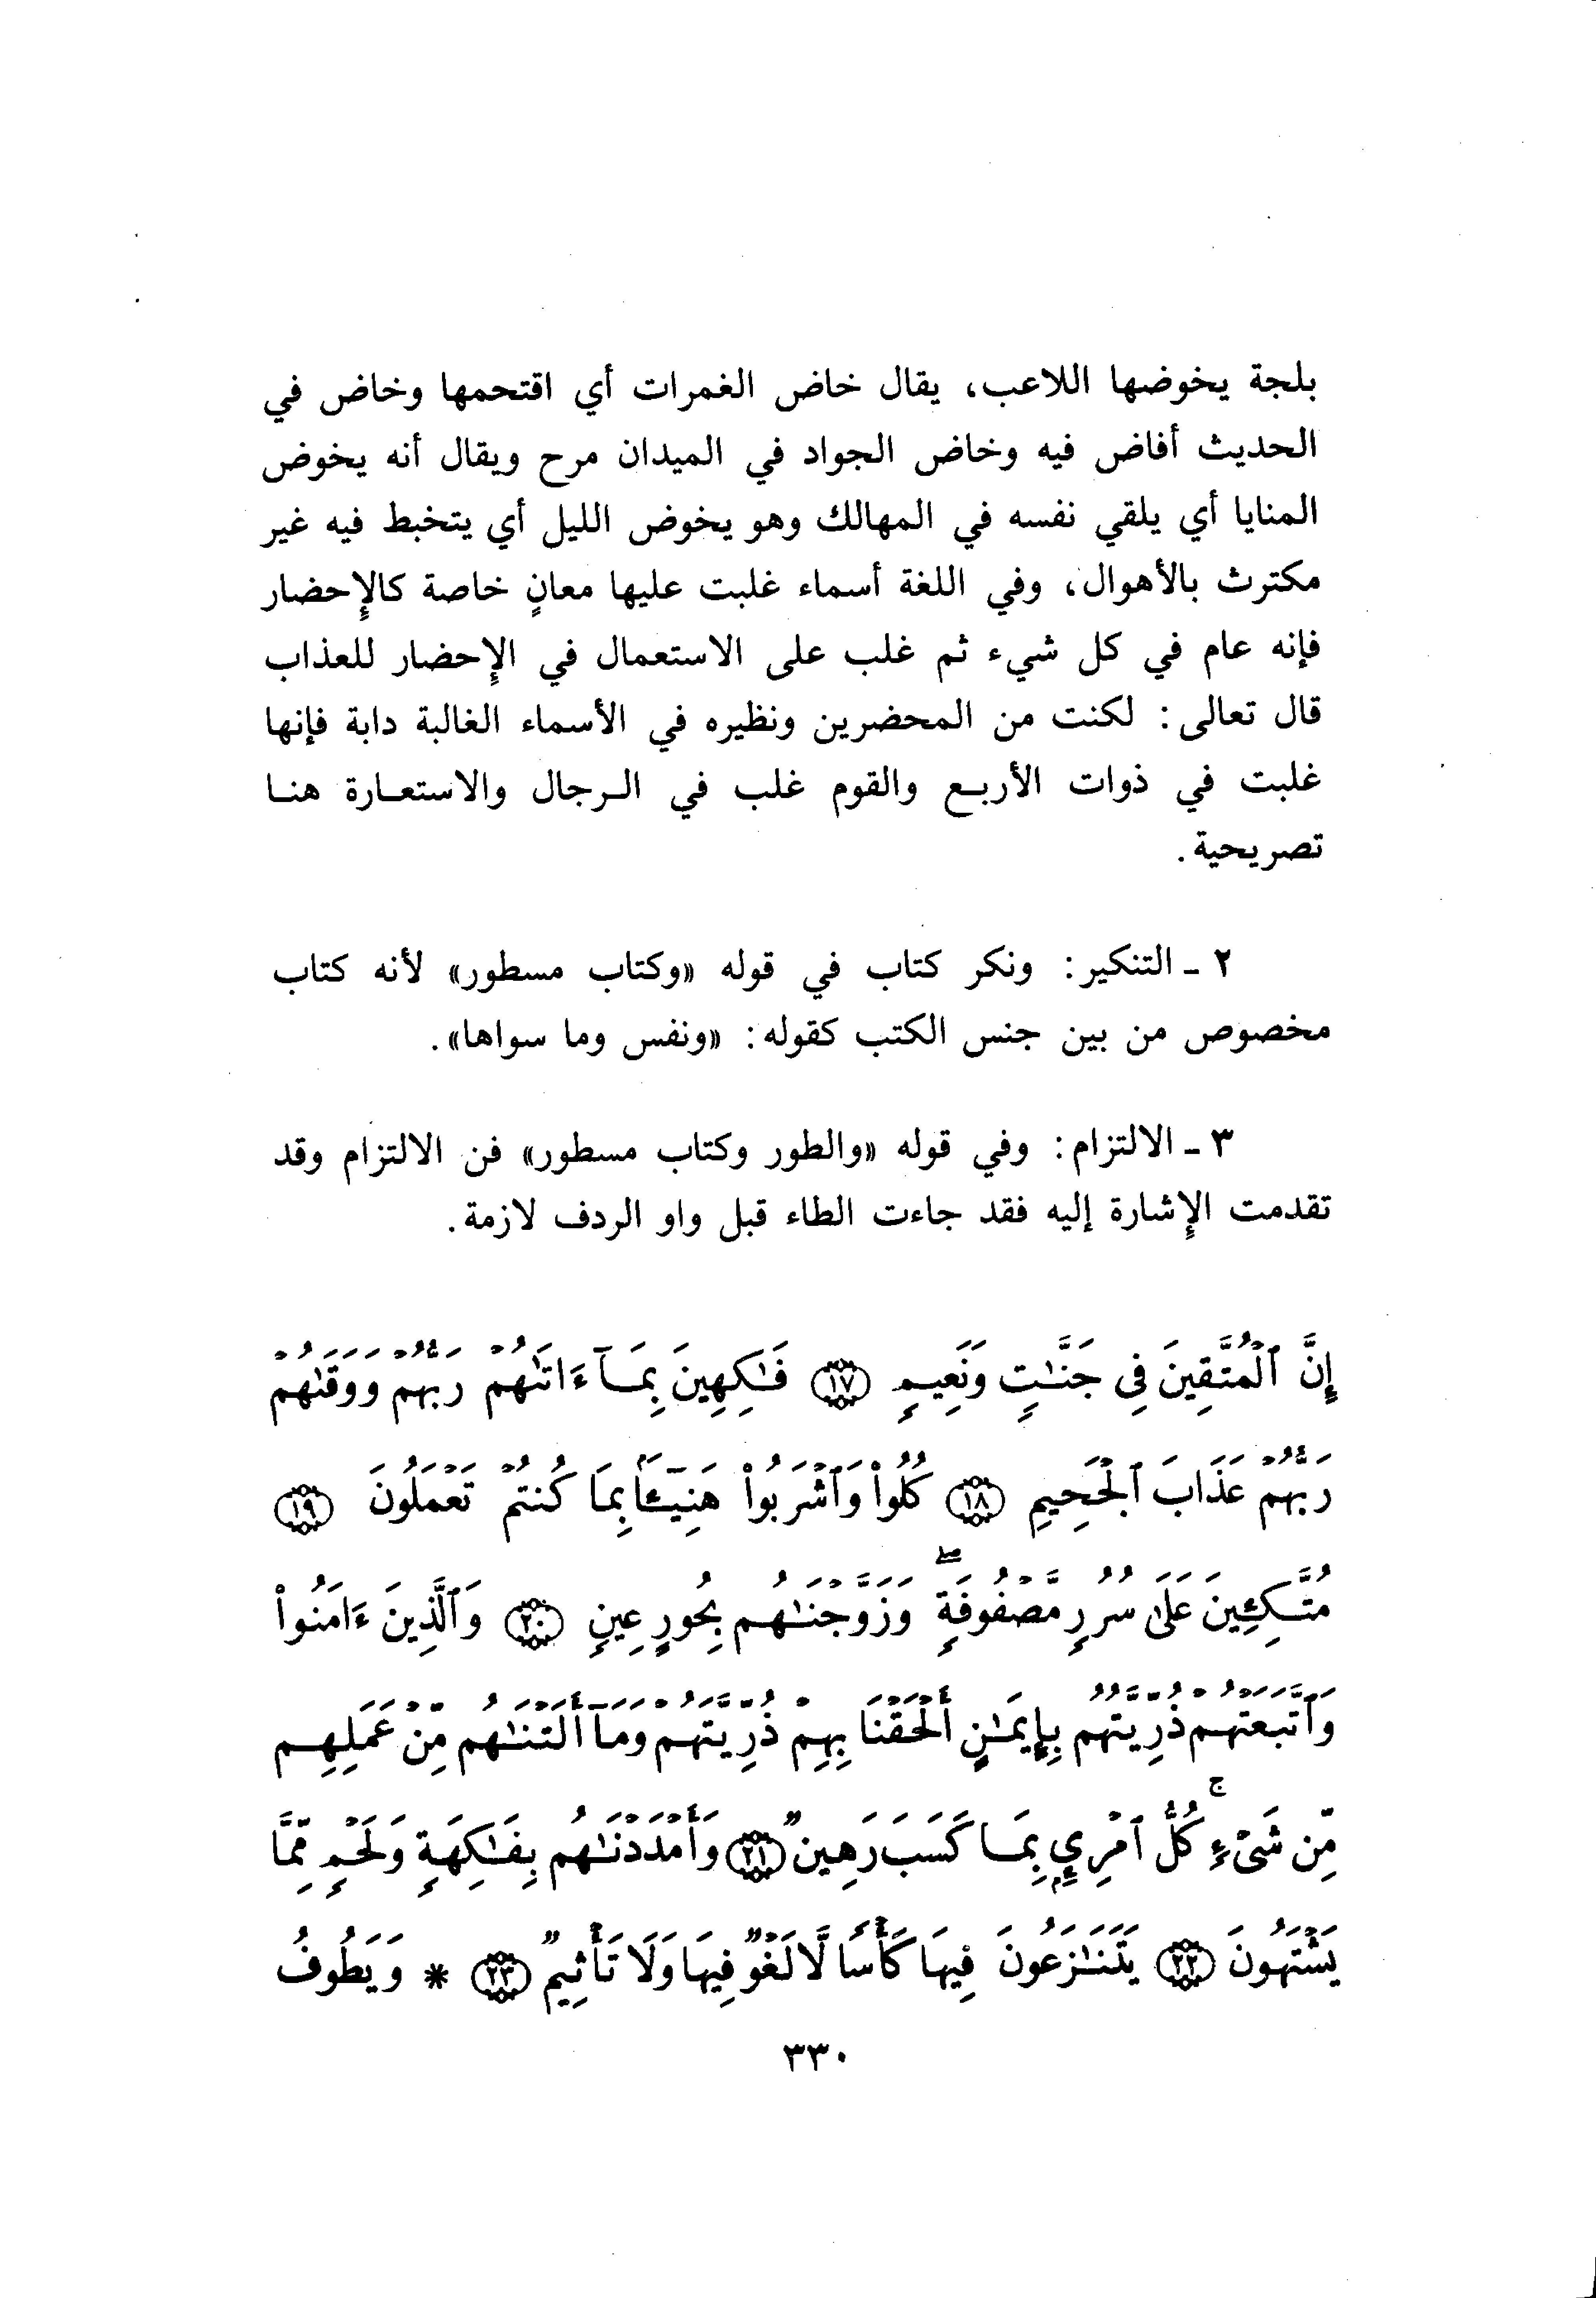 بلجة يخوضها اللاعب، يقال خاض الغمرات أي اقتحمها وخاض في
الحديث أفاض فيه وخاض الجواد في الميدان مرح ويقال أنه يخوض
المنايا أي يلقي نفسه في المهالك وهو يخوض الليل أي يتخبط فيه غير
مكترث بالأهوال، وفي اللغة أسماء غلبت عليها معانٍ خاصة كالإِحضار
فإنه عام في كل شيء ثم غلب على الاستعمال في الإِحضار للعذاب
قال تعالى: لكنت من المحضرين ونظيره في الأسماء الغالبة دابة فإنها
غلبت في ذوات الأربـع والقوم غلب في الـرجال والاستعـارة هنـا
تصريحية.
٢ ـ التنكير: ونكر كتاب في قوله «وكتاب مسطور» لأنه كتاب
مخصوص من بين جنس الكتب كقوله: «ونفس وما سواها».
٣ ـ الالتزام: وفي قوله «والطور وكتاب مسطور» فن الالتزام وقد
تقدمت الإِشارة إليه فقد جاءت الطاء قبل واو الردف لازمة.
إِنَّ ٱلْمُتَّقِينَ فِى جَنَّـٰتٍ وَنَعِيمٍ ١٧ فَـٰكِهِينَ بِمَآ ءَاتَىٰهُمْ رَبُّهُمْ وَوَقَىٰهُمْ
رَبُّهُمْ عَذَابَ ٱلْجَحِيمِ ١٨ كُلُوا۟ وَٱشْرَبُوا۟ هَنِيٓـًٔۢا بِمَا كُنتُمْ تَعْمَلُونَ ١٩
مُتَّكِـِٔينَ عَلَىٰ سُرُرٍ مَّصْفُوفَةٍ ۖ وَزَوَّجْنَـٰهُم بِحُورٍ عِينٍ ٢٠ وَٱلَّذِينَ ءَامَنُوا۟
وَٱتَّبَعَتْهُمْ ذُرِّيَّتُهُم بِإِيمَـٰنٍ أَلْحَقْنَا بِهِمْ ذُرِّيَّتَهُمْ وَمَآ أَلَتْنَـٰهُم مِّنْ عَمَلِهِم
مِّن شَىْءٍ ۚ كُلُّ ٱمْرِئٍۭ بِمَا كَسَبَ رَهِينٌ ٢١ وَأَمْدَدْنَـٰهُم بِفَـٰكِهَةٍ وَلَحْمٍ مِّمَّا
يَشْتَهُونَ ٢٢ يَتَنَـٰزَعُونَ فِيهَا كَأْسًا لَّا لَغْوٌ فِيهَا وَلَا تَأْثِيمٌ ٢٣ * وَيَطُوفُ
٣٣٠